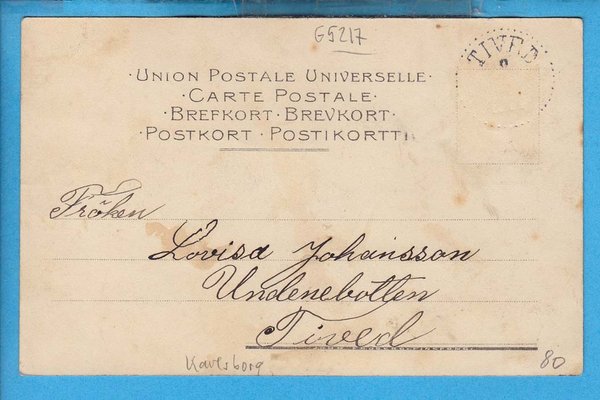 G5217
TIVED
·UNION POSTALE UNIVERSELLE·
·CARTE POSTALE·
·BREFKORT·BREVKORT·
·POSTKORT·POSTIKORTTI·
Fröken
Lovisa Johansson
Undenebotten
Tived
Kavlsborg
80